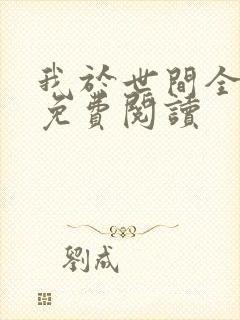 我於世間全
免費閱讀
劉成